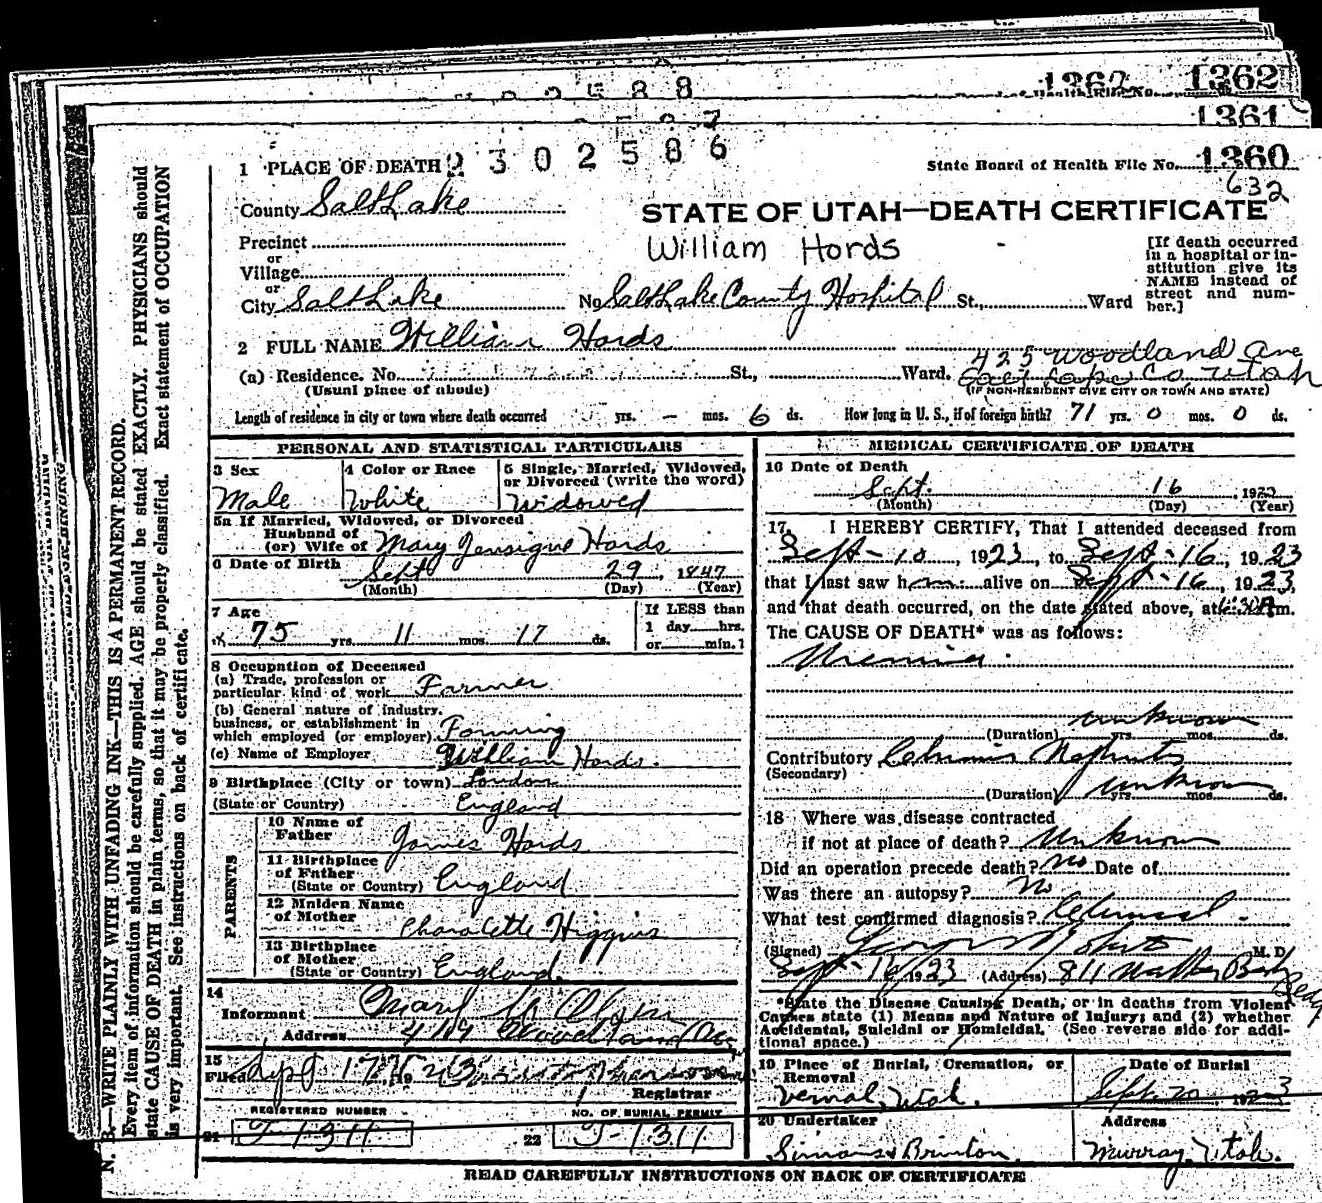 1362 1362
2588
State Board of Health File No.
1361
2587
1 PLACE OF DEATH 2302586
State Board of Health File No. 1360
632
County Salt Lake
STATE OF UTAH—DEATH CERTIFICATE
William Hords
Precinct
or
Village
or
City Salt Lake No. Salt Lake County Hospital St., Ward
[If death occurred
in a hospital or in-
stitution give its
NAME instead of
street and num-
ber.]
2 FULL NAME William Hords
425 Woodland Ave
(a) Residence. No. St., Ward. Salt Lake Co Utah
(Usual place of abode) (IF NON-RESIDENT GIVE CITY OR TOWN AND STATE)
Length of residence in city or town where death occurred yrs. — mos. 6 ds. How long in U. S., if of foreign birth? 71 yrs. 0 mos. 0 ds.
PERSONAL AND STATISTICAL PARTICULARS
3 Sex 4 Color or Race 5 Single, Married, Widowed,
or Divorced (write the word)
Male White Widowed
5a If Married, Widowed, or Divorced
Husband of
(or) Wife of Mary Hords
6 Date of Birth Sept 29, 1847
(Month) (Day) (Year)
7 Age If LESS than
75 yrs. 11 mos. 17 ds. 1 day hrs.
or min.?
8 Occupation of Deceased
(a) Trade, profession or
particular kind of work Farmer
(b) General nature of industry,
business, or establishment in
which employed (or employer) Farming
(c) Name of Employer William Hords.
9 Birthplace (City or town) London
(State or Country) England
PARENTS
10 Name of
Father James Hords
11 Birthplace
of Father
(State or Country) England
12 Maiden Name
of Mother Charolette Higgins
13 Birthplace
of Mother
(State or Country) England.
14
Informant Mary
Address Woodland Ave
15
Filed Sept 17, 1923
Registrar
REGISTERED NUMBER NO. OF BURIAL PERMIT
21 J-1311 22 J-1311
MEDICAL CERTIFICATE OF DEATH
16 Date of Death
Sept. 16, 1923
(Month) (Day) (Year)
17. I HEREBY CERTIFY, That I attended deceased from
Sept-10, 1923, to Sept-16, 1923
that I last saw him alive on Sept-16, 1923,
and that death occurred, on the date stated above, at 6:30 A m.
The CAUSE OF DEATH* was as follows:
Uremia.
unknown
(Duration) yrs. mos. ds.
Contributory Chronic Nephritis
(Secondary)
unknown
(Duration) yrs. mos. ds.
18 Where was disease contracted
if not at place of death? Unknown
Did an operation precede death? no Date of
Was there an autopsy? No
What test confirmed diagnosis? Clinical
(Signed) George Roberts M. D.
Sept-16, 1923 (Address) 811 Walker Bank Bldg
*State the Disease Causing Death, or in deaths from Violent
Causes state (1) Means and Nature of Injury; and (2) whether
Accidental, Suicidal or Homicidal. (See reverse side for addi-
tional space.)
19 Place of Burial, Cremation, or
Removal
Vernal, Utah.
Date of Burial
Sept. 20, 1923
20 Undertaker Address
Simons & Brinton. Murray, Utah.
READ CAREFULLY INSTRUCTIONS ON BACK OF CERTIFICATE
N. B.—WRITE PLAINLY WITH UNFADING INK—THIS IS A PERMANENT RECORD.
Every item of information should be carefully supplied. AGE should be stated EXACTLY. PHYSICIANS should
state CAUSE OF DEATH in plain terms, so that it may be properly classified. Exact statement of OCCUPATION
is very important. See instructions on back of certificate.